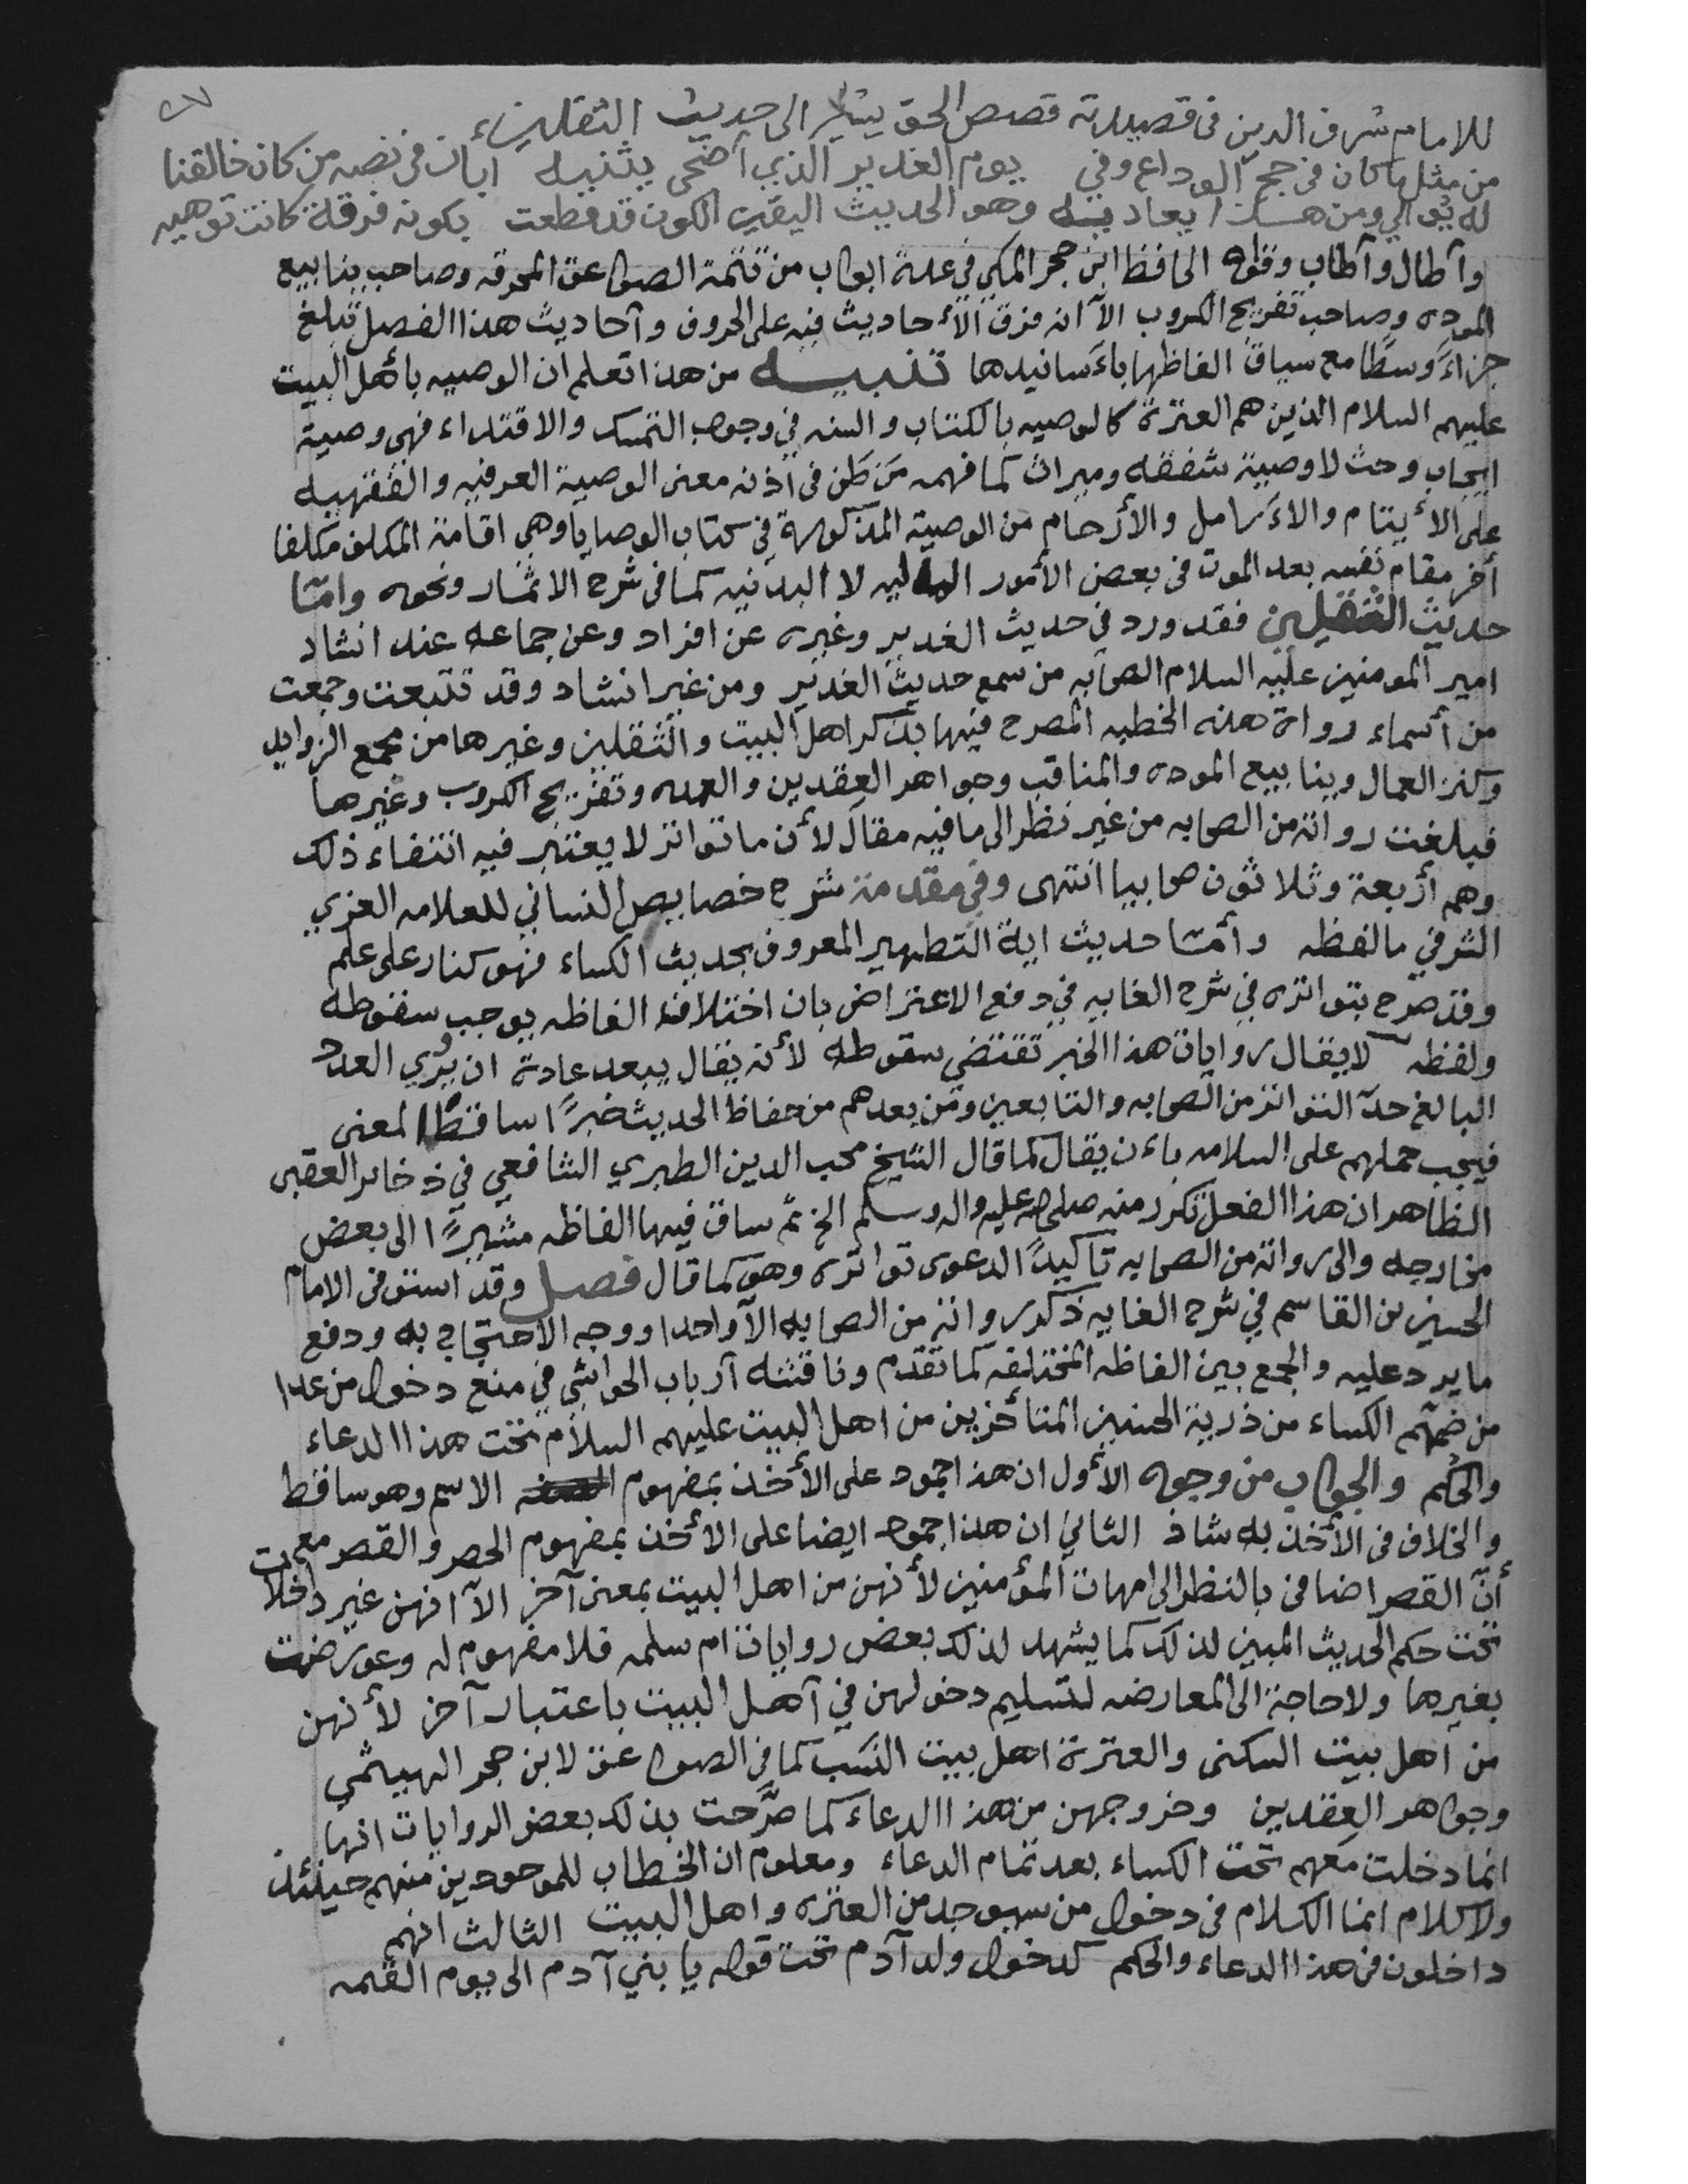 ٤٧
للامام شرف الدين في قصيدته قصص الحق يشير الى حديث الثقلين
من مثل ما كان في حج الوداع وفي يوم الغدير الذي أضحى يثنيه أبان في نصه من كان خالقنا
له يوالي ومن هذا يعاديه وهو الحديث اليقين الكون قد قطعت بكونه فرقة كانت توهيه
وأطال وأطاب وقواه الحافظ ابن حجر المكي في عدة ابواب من تتمة الصواعق المحرقه وصاحب ينابيع
الموده وصاحب تفريج الكروب الآ انه فرق الأحاديث فيه على الحروف وأحاديث هذا الفصل تبلغ
جزاءً وسطًا مع سياق الفاظها باءسانيدها تنبيه من هذا تعلم ان الوصيه بأهل البيت
عليهم السلام الذين هم العترة كالوصيه بالكتاب والسنه في وجوب التمسك والاقتداء فهي وصية
ايجاب وحث لا وصية شفقه وميراث كما فهمه من طن في أذنه معنى الوصية العرفيه والفقهيه
على الأيتام والاءرامل والأرحام من الوصية المذكورة في كتاب الوصايا وهي اقامة المكلف مكلفا
أخر مقام نفسه بعد الموت في بعض الأمور الماليه لا البدنيه كما في شرح الاثمار ونحوه وامّا
حديث الثقلين فقد ورد في حديث الغدير وغيره عن افراد وعن جماعه عند انشاد
امير المومنين عليه السلام الصحابه من سمع حديث الغدير ومن غير انشاد وقد تتبعت وجمعت
من أسماء رواة هذه الخطبه المصرح فيها بذكر اهل البيت والثقلين وغيرها من مجمع الزوايد
وكنز العمال وينابيع الموده والمناقب وجواهر العقدين والعمده وتفريج الكروب وغيرها
فبلغت رواته من الصحابه من غير نظر الى ما فيه مقال لأن ما تواتر لا يعتبر فيه انتفاء ذلك
وهم أربعة وثلاثون صحابيا انتهى وفي مقدمة شرح خصايص النسائي للعلامه العزي
الشرفي ما لفظه وأمّا حديث اية التطهير المعروف بحديث الكساء فهو كنار على علم
وقد صرح بتواتره في شرح الغايه في دفع الاعتراض بان اختلاف الفاظه يوجب سقوطه
ولفظه لا يقال روايات هذا الخبر تقتضي سقوطه لأنه يقال يبعد عادة ان يروي العدد
البالغ حدّ التواتر من الصحابه والتابعين ومن بعدهم من حفاظ الحديث خبرًا ساقط المعنى
فيجب حملهم على السلامه باءن يقال كما قال الشيخ محب الدين الطبري الشافعي في ذخاير العقبى
الظاهر ان هذا الفعل تكرر منه صلى الله عليه واله وسلم الخ ثم ساق فيها الفاظه مشيرًا الى بعض
مخارجه والى رواته من الصحابه تأكيدًا لدعوى تواتره وهو كما قال فصل وقد استوفى الامام
الحسين بن القاسم في شرح الغايه ذكر رواته من الصحابه الآ واحدا ووجه الاحتجاج به ودفع
ما يرد عليه والجمع بين الفاظه المختلفه كما تقدم وناقشه أرباب الحواشي في منع دخول من عدا
من ضمّهم الكساء من ذرية الحسنين المتأخرين من اهل البيت عليهم السلام تحت هذا الدعاء
والحكم والجواب من وجوه الأول ان هذا جمود على الأخذ بمفهوم الاسم وهو ساقط
والخلاف في الأخذ به شاذ الثاني ان هذا جمود ايضا على الأخذ بمفهوم الحصر والقصر مع
أنّ القصر اضافي بالنظر الى امهات المؤمنين لأنهن من اهل البيت بمعنى آخر الآ انهن غير داخلات
تحت حكم الحديث المبين لذلك كما يشهد لذلك بعض روايات ام سلمه فلا مفهوم له وعورضت
بغيرها ولا حاجة الى المعارضه لتسليم دخولهن في أهل البيت باعتبار آخر لأنهن
من اهل بيت السكنى والعترة اهل بيت النسب كما في الصواعق لابن حجر الهيثمي
وجواهر العقدين وخروجهن من هذا الدعاء كما صرّحت بذلك بعض الروايات انها
انما دخلت معهم تحت الكساء بعد تمام الدعاء ومعلوم ان الخطاب للموجودين منهم حينئذ
ولا كلام انما الكلام في دخول من سيوجد من العتره واهل البيت الثالث انهم
داخلون في هذا الدعاء والحكم كدخول ولد آدم تحت قوله يا بني آدم الى يوم القيمه